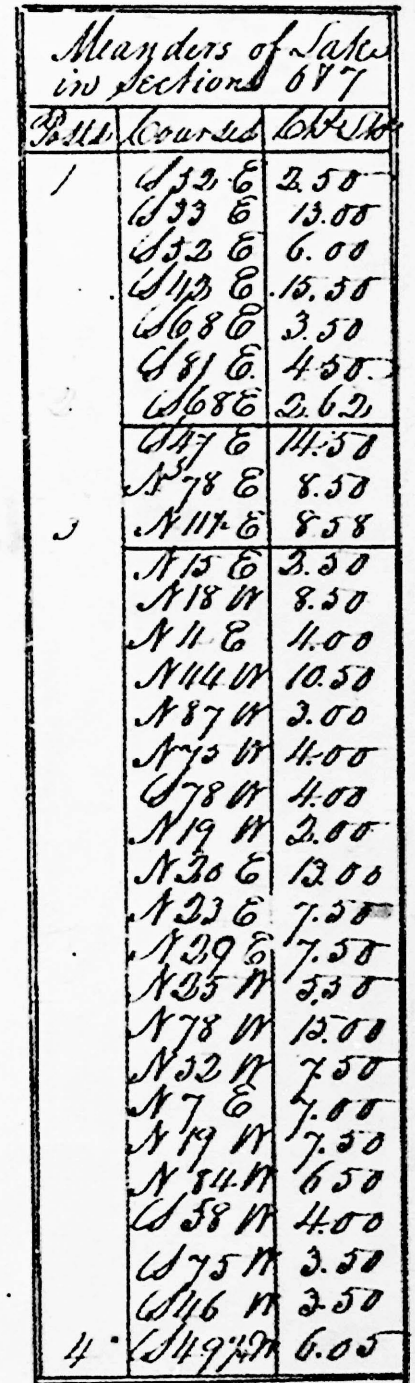 Meanders of Lake
in Sections 6 & 7
Posts Courses Chs Lks
1 S 32 E 2.50
S 33 E 13.00
S 52 E 6.00
S 42 E 15.50
S 68 E 3.50
S 81 E 4.50
2 S 68 E 2.62
S 47 E 14.50
N 78 E 8.50
3 N 14 E 8.58
N 15 E 2.50
N 18 W 8.50
N 4 E 4.00
N 44 W 10.50
N 87 W 3.00
N 73 W 4.00
S 78 W 4.00
N 19 W 2.00
N 20 E 13.00
N 23 E 7.50
N 29 E 7.50
N 25 W 5.50
N 78 W 15.00
N 32 W 7.50
N 7 E 7.00
N 19 W 7.50
N 84 W 6.50
S 58 W 4.00
S 75 W 3.50
S 46 W 3.50
4 S 49½ W 6.05